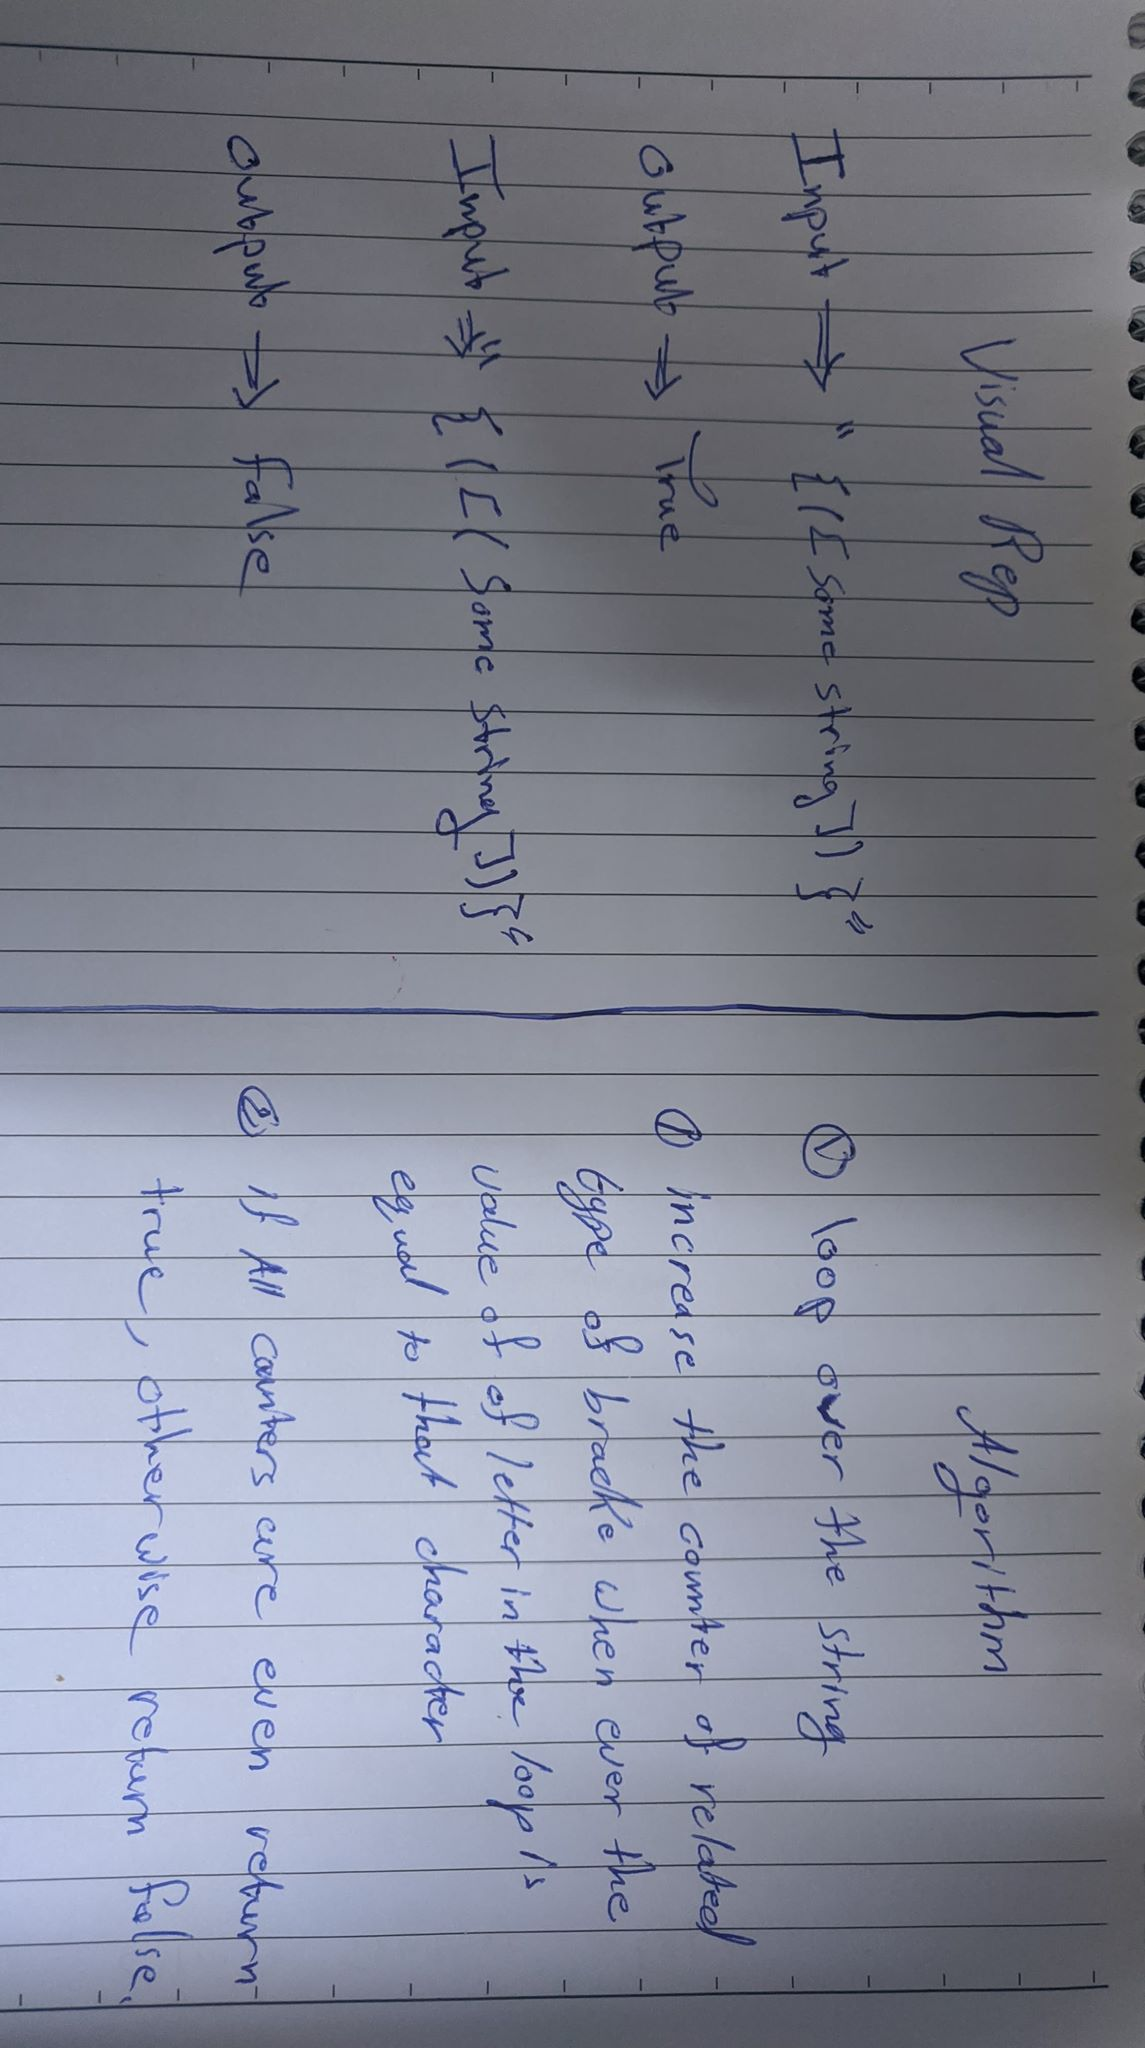 Visual Rep
Input ⇒ " {([Some string])}"
Output ⇒ True
Input ⇒ " {([(Some string])}"
Output ⇒ false
Algorithm
① loop over the string
① increase the counter of related
type of bracke when ever the
value of of letter in the loop is
equal to that character
② if All counters are even return
true, otherwise return false.